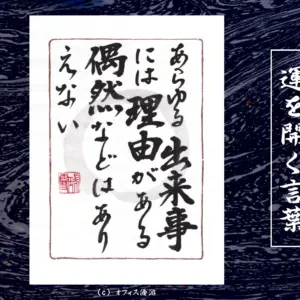 運を開く言葉
あらゆる出来事
には理由がある
偶然などはあり
えない
(C) オフィス湯沼